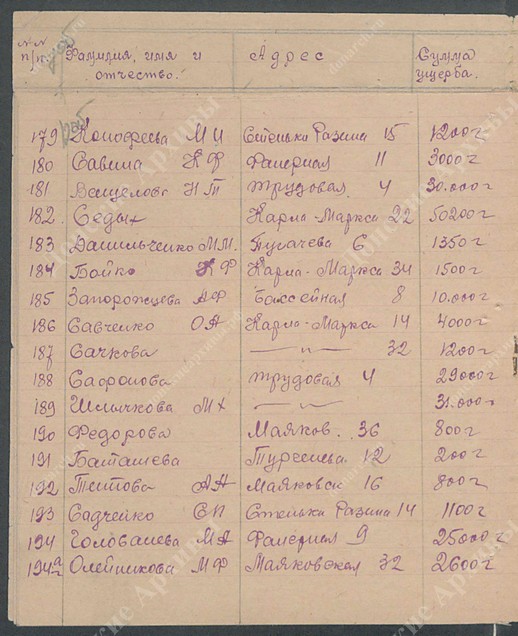 №№ п/п. Фамилия, имя и отчество. Адрес Сумма ущерба.
179 М И Стеньки Разина 15 1200 г
180 Савина К Ф Фанерная 11 3000 г
181 Н Т Трудовая 4 30.000 г
182. Седых Карла-Маркса 22 50200 г
183 Данильченко М М. Пугачева 6 1350 г
184 Бойко К Ф Карла-Маркса 34 1500 г
185 Запорожцева А Ф Бассейная 8 10.000 г
186 Савченко О А Карла-Маркса 14 4000 г
187 Сачкова —"— 32 1200 г
188 Сафронова Трудовая 4 29000 г
189 Шлычкова М Х —"— 31.000 г
190 Федорова Маяков. 36 800 г
191 Баташева 12 200 г
192 Титова А Н Маяковск 16 800 г
193 Садчейко Е П Стеньки Разина 14 1100 г
194 М А Фанерная 9 25000 г
194а Олейникова М Ф Маяковская 32 2600 г